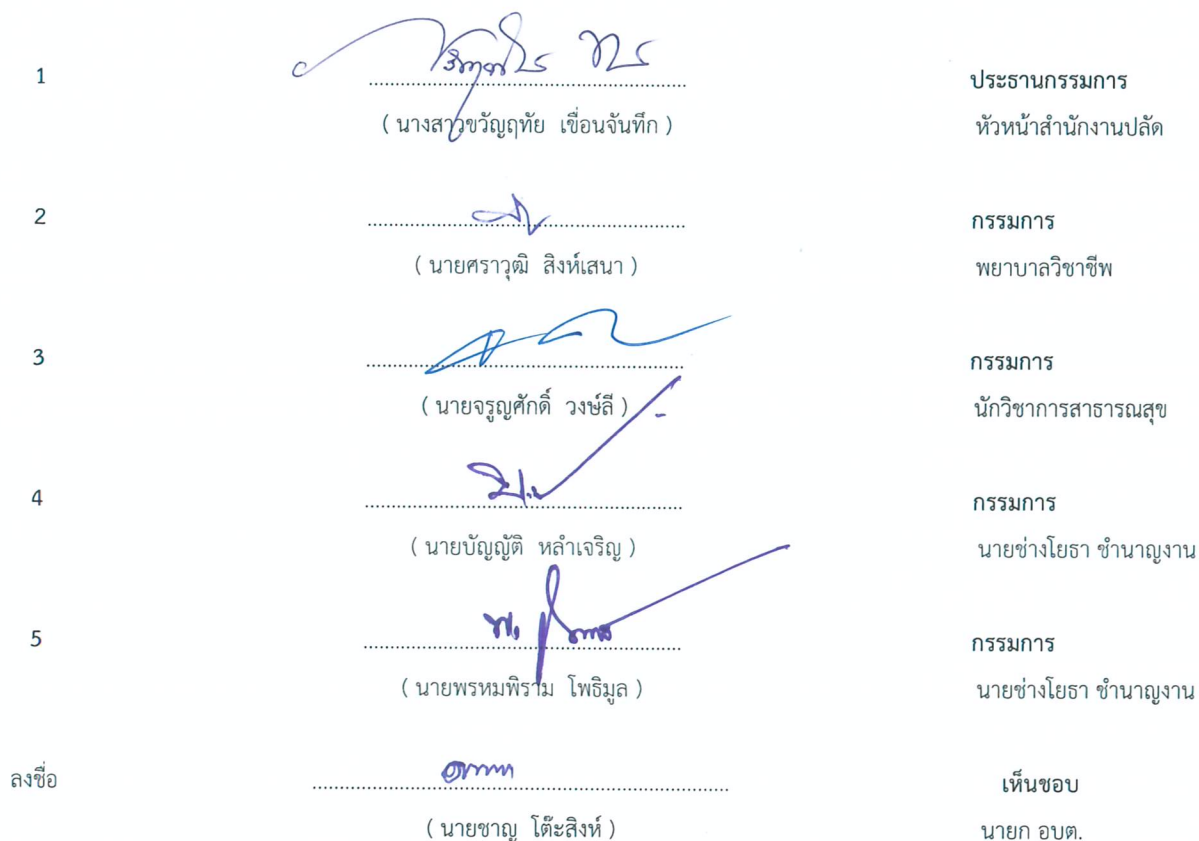 1 ประธานกรรมการ
( นางสาวขวัญฤทัย เขื่อนจันทึก ) หัวหน้าสำนักงานปลัด
2 กรรมการ
( นายศราวุฒิ สิงห์เสนา ) พยาบาลวิชาชีพ
3 กรรมการ
( นายจรูญศักดิ์ วงษ์ลี ) นักวิชาการสาธารณสุข
4 กรรมการ
( นายบัญญัติ หลำเจริญ ) นายช่างโยธา ชำนาญงาน
5 กรรมการ
( นายพรหมพิราม โพธิมูล ) นายช่างโยธา ชำนาญงาน
ลงชื่อ เห็นชอบ
( นายชาญ โต๊ะสิงห์ ) นายก อบต.